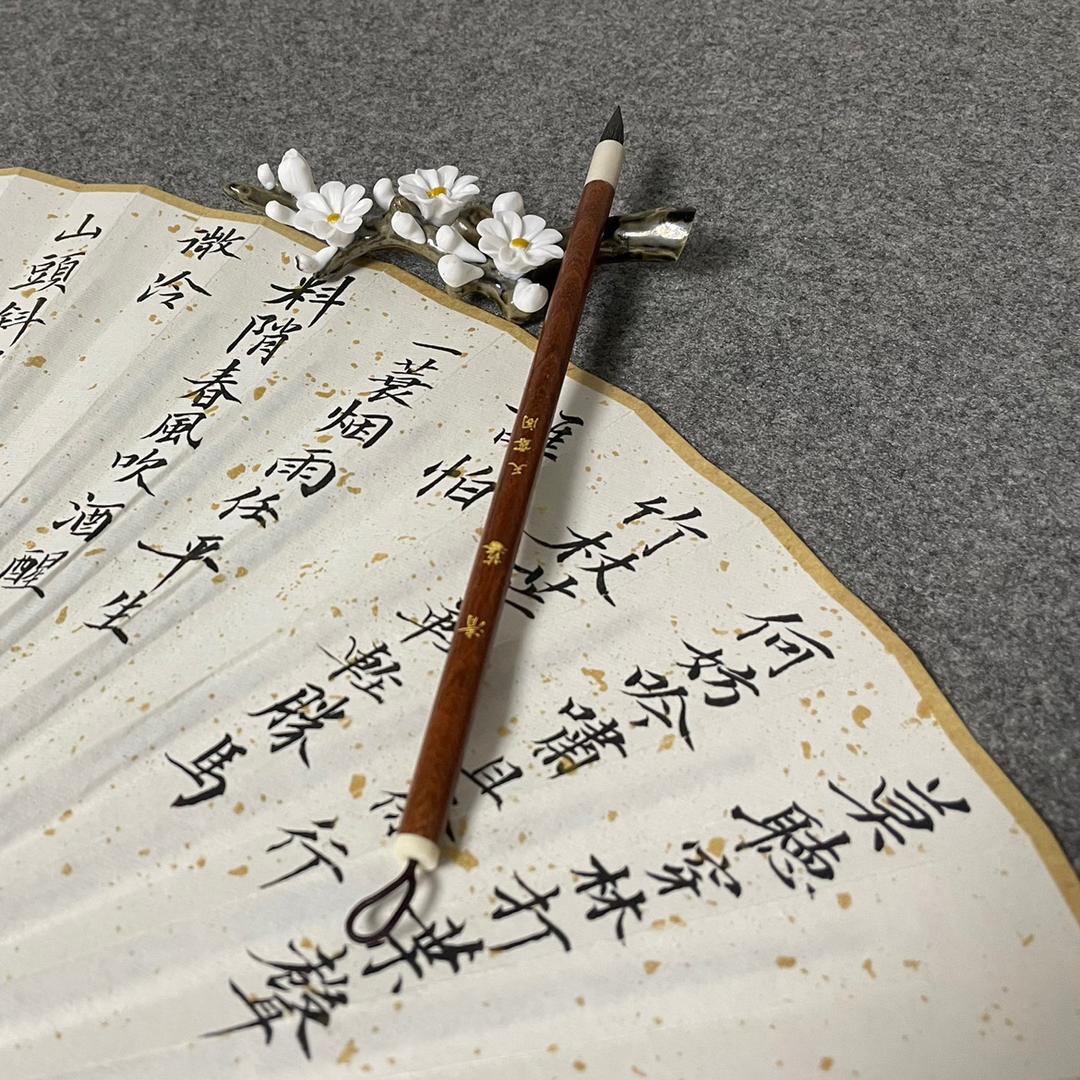 莫聽穿林打葉聲
何妨吟嘯且徐行
竹杖芒鞋輕勝馬
誰怕
一蓑烟雨任平生
料陗春風吹酒醒
微冷
山頭斜
清